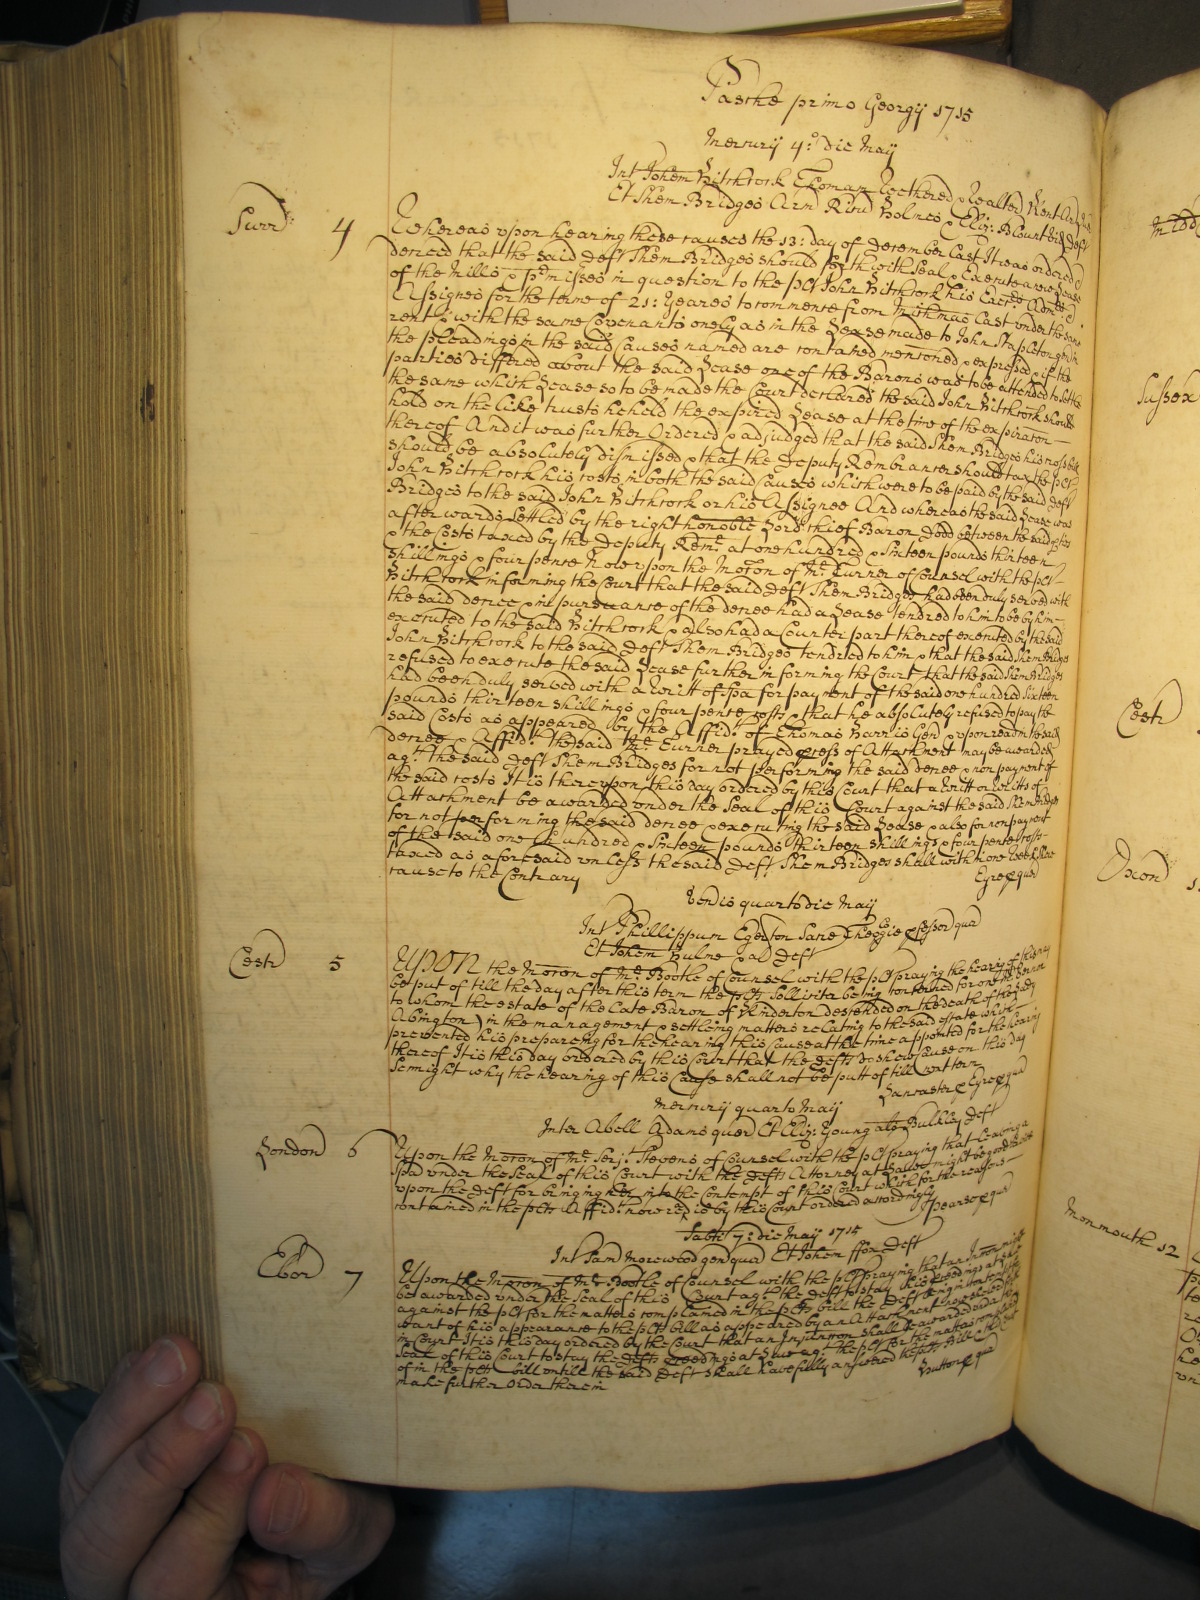 Pasche primo Georgij 1715
Mercurij 4:o die May
Int Johem Hitchcock Thomam Wethered & Walter Kent Ar Quer
Et Shem Bridges Arm Ricu Holmes & Eliz: Blount vid Deft
Surr: 4 Whereas vpon hearing these causes the 13: day of December last It was ordered &
decreed that the said Deft Shem Bridges should forthwith Seal & Execute a new Lease
of the Mills & p'misses in question to the plt John Hitchcock his Execrs Admrs &
Assignes for the terme of 21: Yeares to comence from Xristmas last vnder the same
rent & with the same Covenants onely as in the Lease made to John Stapleton gent in
the pleadings in the said Causes named are contained mencioned & expressed & if the
parties differed about the said Lease one of the Barons was to be attended to settle
the same which Lease so to be made the Court declared the said John Hitchcock should
hold on the like trusts he held the expired Lease at the time of the expiracon
thereof And it was further Ordered & adjudged that the said Shem Bridges his cross bill
should be absolutely dismissed & that the Deputy Remembrancer should tax the plt
John Hitchcock his costs in both the said Causes which were to be paid by the said Deft
Bridges to the said John Hitchcock or his Assignee And whereas the said Lease was
afterwards settled by the right honoble Lord chief Baron Dodd between the said pties
& the Costs taxed by the Deputy Reme at one hundred & Sixteen pounds thirteen
shillings & four pence Now vpon the Mocon of Mr Turner of Counsel with the plt
Hitchcock informing the Court that the said Deft Shem Bridges had been duly served with
the said decree & in pursuance of the decree had a Lease tendred to him to be by him
executed to the said Hitchcock & also had a Counter part thereof executed by the said
John Hitchcock to the said Deft Shem Bridges tendred to him & that the said Shem Bridges
refused to execute the said Lease further informing the Court that the said Shem Bridges
had been duly served with a Writt of Spa for payment of the said one hundred Sixteen
pounds thirteen shillings & four pence costs & that he absolutely refused to pay the
said Costs as appeared by the Affidt of Thomas Harris Gen & vpon reading the said
decree & Affidt the said Mr Turner prayed process of Attachment may be awarded
agt the said Deft Shem Bridges for not performing the said decree & non payment of
the said costs It is therevpon this day ordered by this Court that a Writt or Writts of
Attachment be awarded vnder the Seal of this Court against the said Shem Bridges
for not performing the said decree & executing the said Lease & also for non payment
of the said one hundred & Sixteen pounds thirteen shillings & four pence costs
taxed as aforesaid vnless the said Deft Shem Bridges shall within one week shew
cause to the Contrary Eyre p quer
Veneris quarto die Maij
Int Phillippum Egerton Sacre Theologie pfessor quer
Et Johem Hulme & al Deft
Cestr 5 UPON the Mocon of Mr Bootle of Counsel with the plt praying the hearing of this cause may
be put of till the day after this term the plts Sollicitor being concerned for one
to whom the estate of the late Baron of Kinderton descended on the death of
Abington) in the management & settleing matters relating to the said estate which
prevented his prepareing for the hearing this Cause at the time appointed for the hearing
thereof It is this day ordered by this Court that the Defts do shew cause on this day
Semight why the hearing of this Cause shall not be putt of till next term
Lancaster & Eyre p quer
Mercurij quarto Maij
Inter Abell Adams quer Et Eliz: Young als Bulkley Deft
London 6 Vpon the Mocon of Mr Serjt Stevens of Counsel with the plt praying that leaving a
Spa vnder the Seal of this Court with the Defts Attorney at Law might be good service
vpon the Deft for bringing her into the Contempt of this Court which for the reasons
contained in the plts Affidt now read is by this Court ordered accordingly
Spearse p quer
Sabti 7: die May 1715
Int Sam Morewood gen quer Et Johem ffox Deft
Ebor 7 Vpon the Mocon of Mr Bootle of Counsel with the plt praying that an Injunccon might
be awarded vnder the Seal of this Court agt the Deft to stay his proceedings at Law
against the plt for the matters complained in the plts bill the Deft being in contempt for
want of his appearance to the plts bill as appeared by an Attachment now
in Court It is this day ordered by the Court that an Injunccon shall be awarded vnder the
Seal of this Court to stay the Defts proceedings at Law agt the plt for the matters complained
of in the plts bill untill the said Deft shall have fully answered the plts Bill &
make further Order therein Hutton p quer
Midd
Sussex
Cestr
Oxon
Monmouth 12